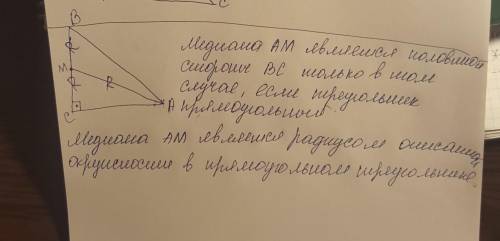 C
B
Медиана АМ является половиной
M
R
стороны ВС только в том
случае, если треугольник
C
A
прямоугольный.
Медиана АМ является радиусом описанной
окружности в прямоугольном треугольнике.